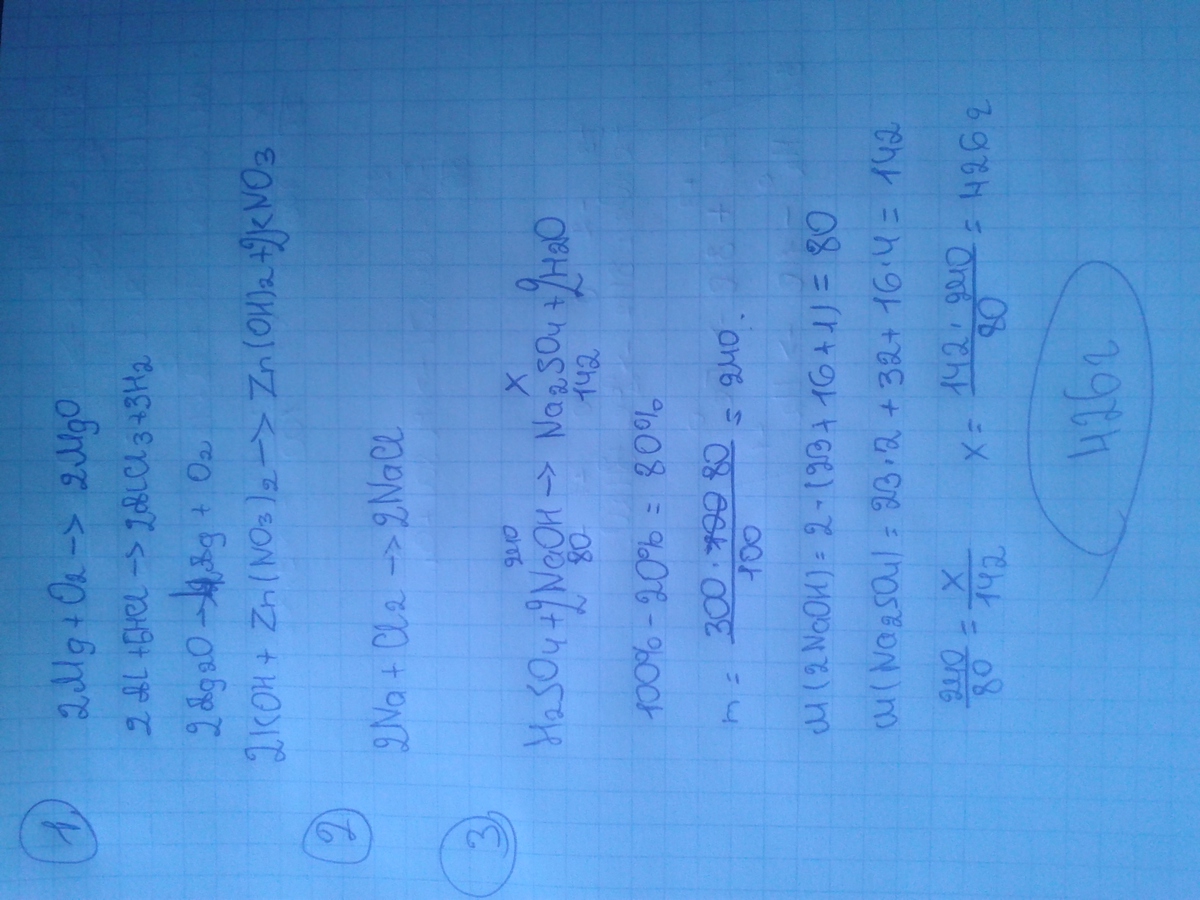 1.
2Mg + O2 -> 2MgO
2Al + 6HCl -> 2AlCl3 + 3H2
2Ag2O -> 4Ag + O2
2KOH + Zn(NO3)2 -> Zn(OH)2 + 2KNO3
2
2Na + Cl2 -> 2NaCl
3
240 x
H2SO4 + 2NaOH -> Na2SO4 + 2H2O
80 142
100% - 20% = 80%
m = 300 · 80 / 100 = 240.
M(2NaOH) = 2 · (23 + 16 + 1) = 80
M(Na2SO4) = 23 · 2 + 32 + 16 · 4 = 142
240/80 = x/142 x = 142 · 240 / 80 = 426 г
426 г